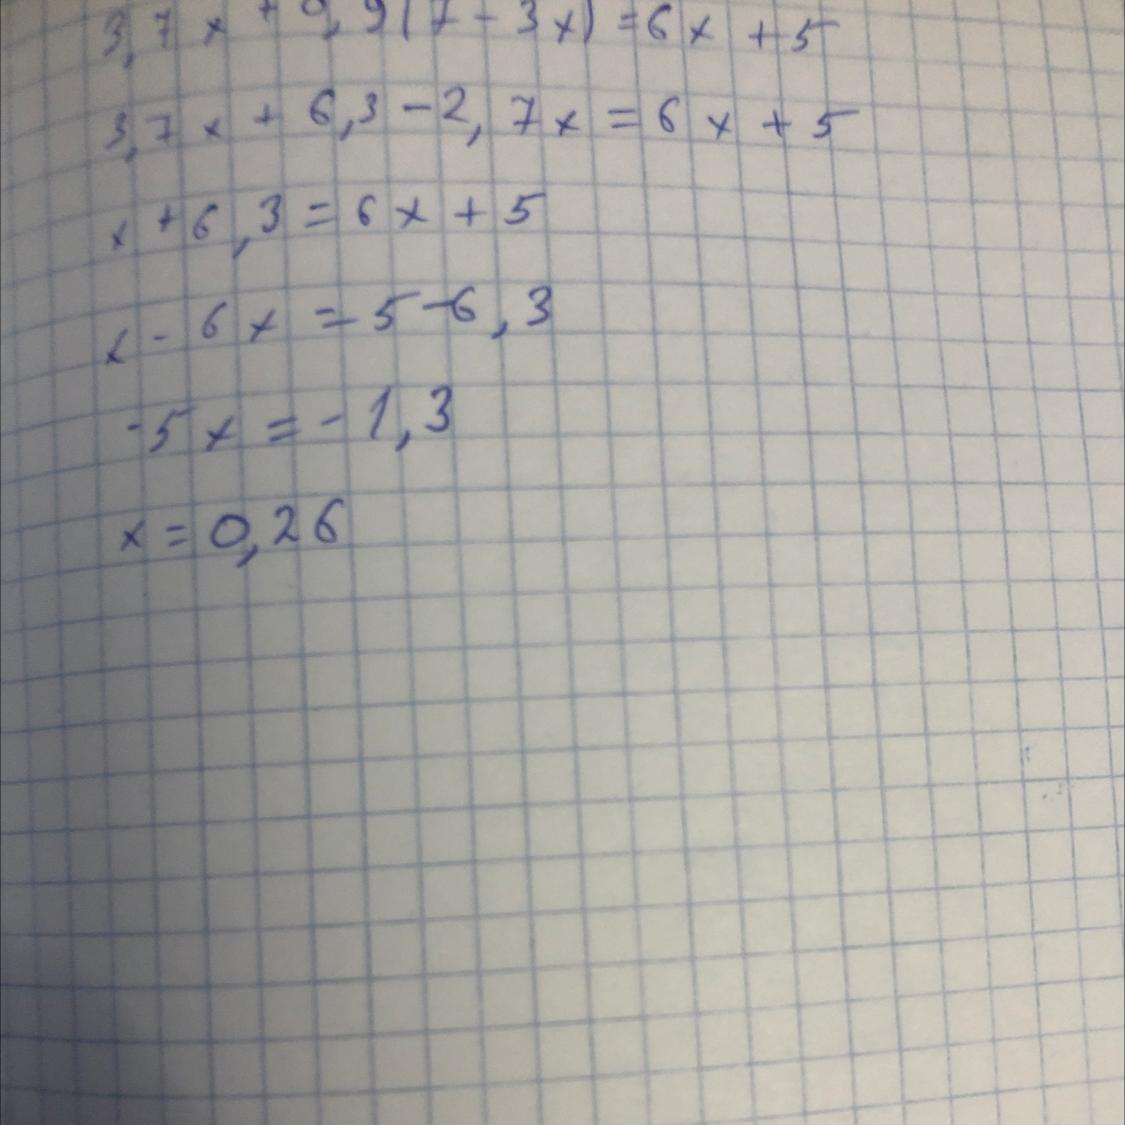 3,7x + 0,9(7 - 3x) = 6x + 5
3,7x + 6,3 - 2,7x = 6x + 5
x + 6,3 = 6x + 5
x - 6x = 5 - 6,3
-5x = -1,3
x = 0,26